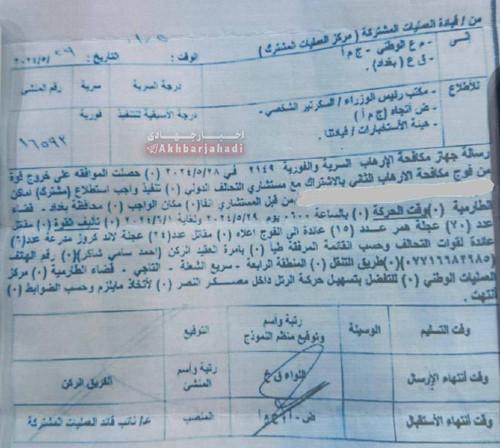 من / قيادة العمليات المشتركة ( مركز العمليات المشترك )
الى
- م ع الوطني - ج م أ
- ق ع ( بغداد ) .
الوقت :
التاريخ : ٢٩ /٢٠٢٤/٥
للأطلاع
- مكتب رئيس الوزراء / السكرتير الشخصي -
- ض أتجاه ( ج م أ )
- هيئة الأستخبارات / قيادتنا .
درجة السرية
سرية
رقم المنشئ
درجة الأسبقية للتنفيذ
فورية
١٦٥٩٢
اخبار جهادی
@Akhbarjahadi
رسالة جهاز مكافحة الإرهاب السرية والفورية ٢١٤٩ في ٢٠٢٤/٥/٢٨ (٠) حصلت الموافقه على خروج قوة
من فوج مكافحة الارهاب الثاني بالاشتراك مع مستشاري التحالف الدولي (٠) تنفيذ واجب استطلاع (مشترك) اماكن
من قبل المستشاري انفا (٠) مكان الواجب (٠) محافظة بغداد - قضاء
الطارمية (٠) وقت الحركة (٠) بالساعة ٦٠٠ يوم ٢٠٢٤/٥/٢٩ ولغاية ٢٠٢٤/٦/١ (٠) تأليف القوة (٠) مقاتل
عدد (٧٠) عجلة همر عدد (١٥) عائدة الى الفوج اعلاه (٠) مقاتل عدد (٢٤) عجلة لاند كروز مدرعة عدد (٦)
عائدة لقوات التحالف وحسب القائمة المرفقة طيا (٠) بامرة العقيد الركن ( احمد سامي شاكر ) (٠) رقم الهاتف
(٠) طريق التنقل (٠) المنطقة الرابعة - سريع الشعلة - التاجي - قضاء الطارمية (٠) مركز
العمليات الوطني (٠) للتفضل بتسهيل حركة الرتل داخل معسكر النصر (٠) لأتخاذ مايلزم وحسب الضوابط (٠)
أنتهت .
وقت التسليم
الوسيلة
رتبة وأسم وتوقيع منظم النموذج
التوقيع
وقت أنتهاء الإرسال
اللواء ق ع
رتبة وأسم المنشئ
الفريق الركن
وقت أنتهاء الأستقبال
المنصب
ع/ نائب قائد العمليات المشتركة